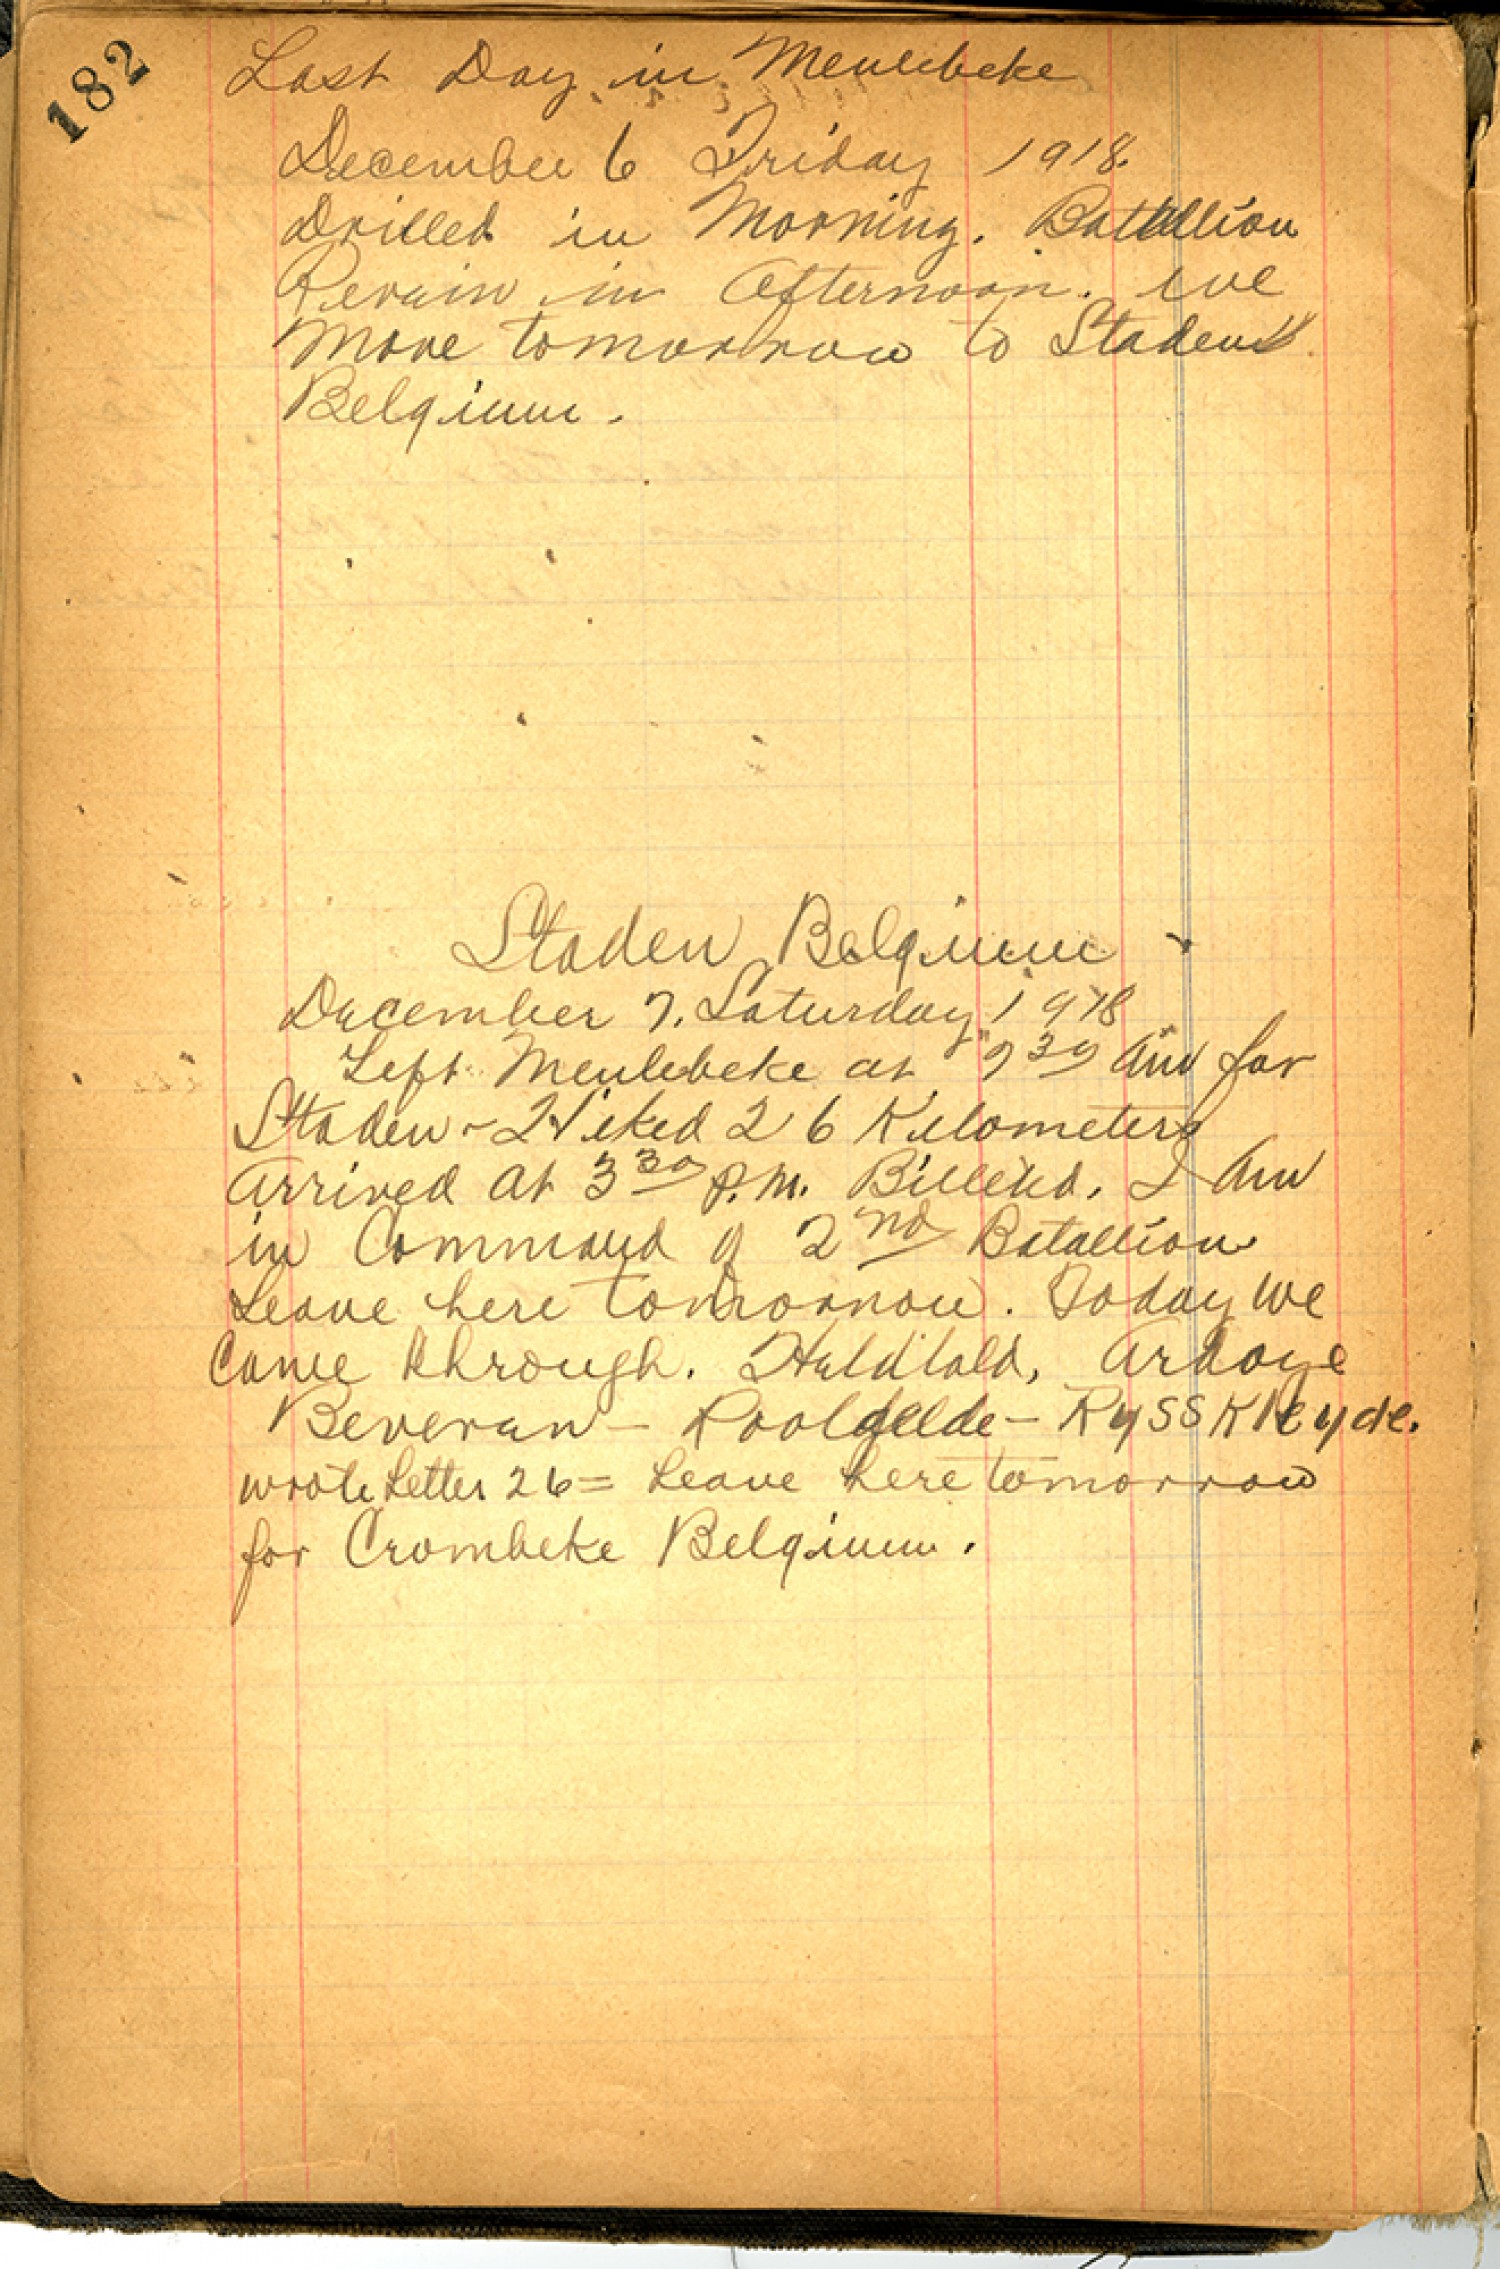 182
Last Day in Meulebeke
December 6 Friday 1918.
Drilled in Morning. Batallion
in Afternoon. We
Move tomorrow to Staden
Belgium.
Staden Belgium
December 7. Saturday 1918
Left Meulebeke at 9 30 AM for
Staden - Hiked 26 Kilometers
Arrived at 3 30 P.M. Billeted. I Am
in Command of 2nd Batallion
Leave here tomorrow. Today We
Came through. Ardoye
Beveren - - RyssKleyde.
wrote Letter 26 = Leave here tomorrow
for Crombeke Belgium.